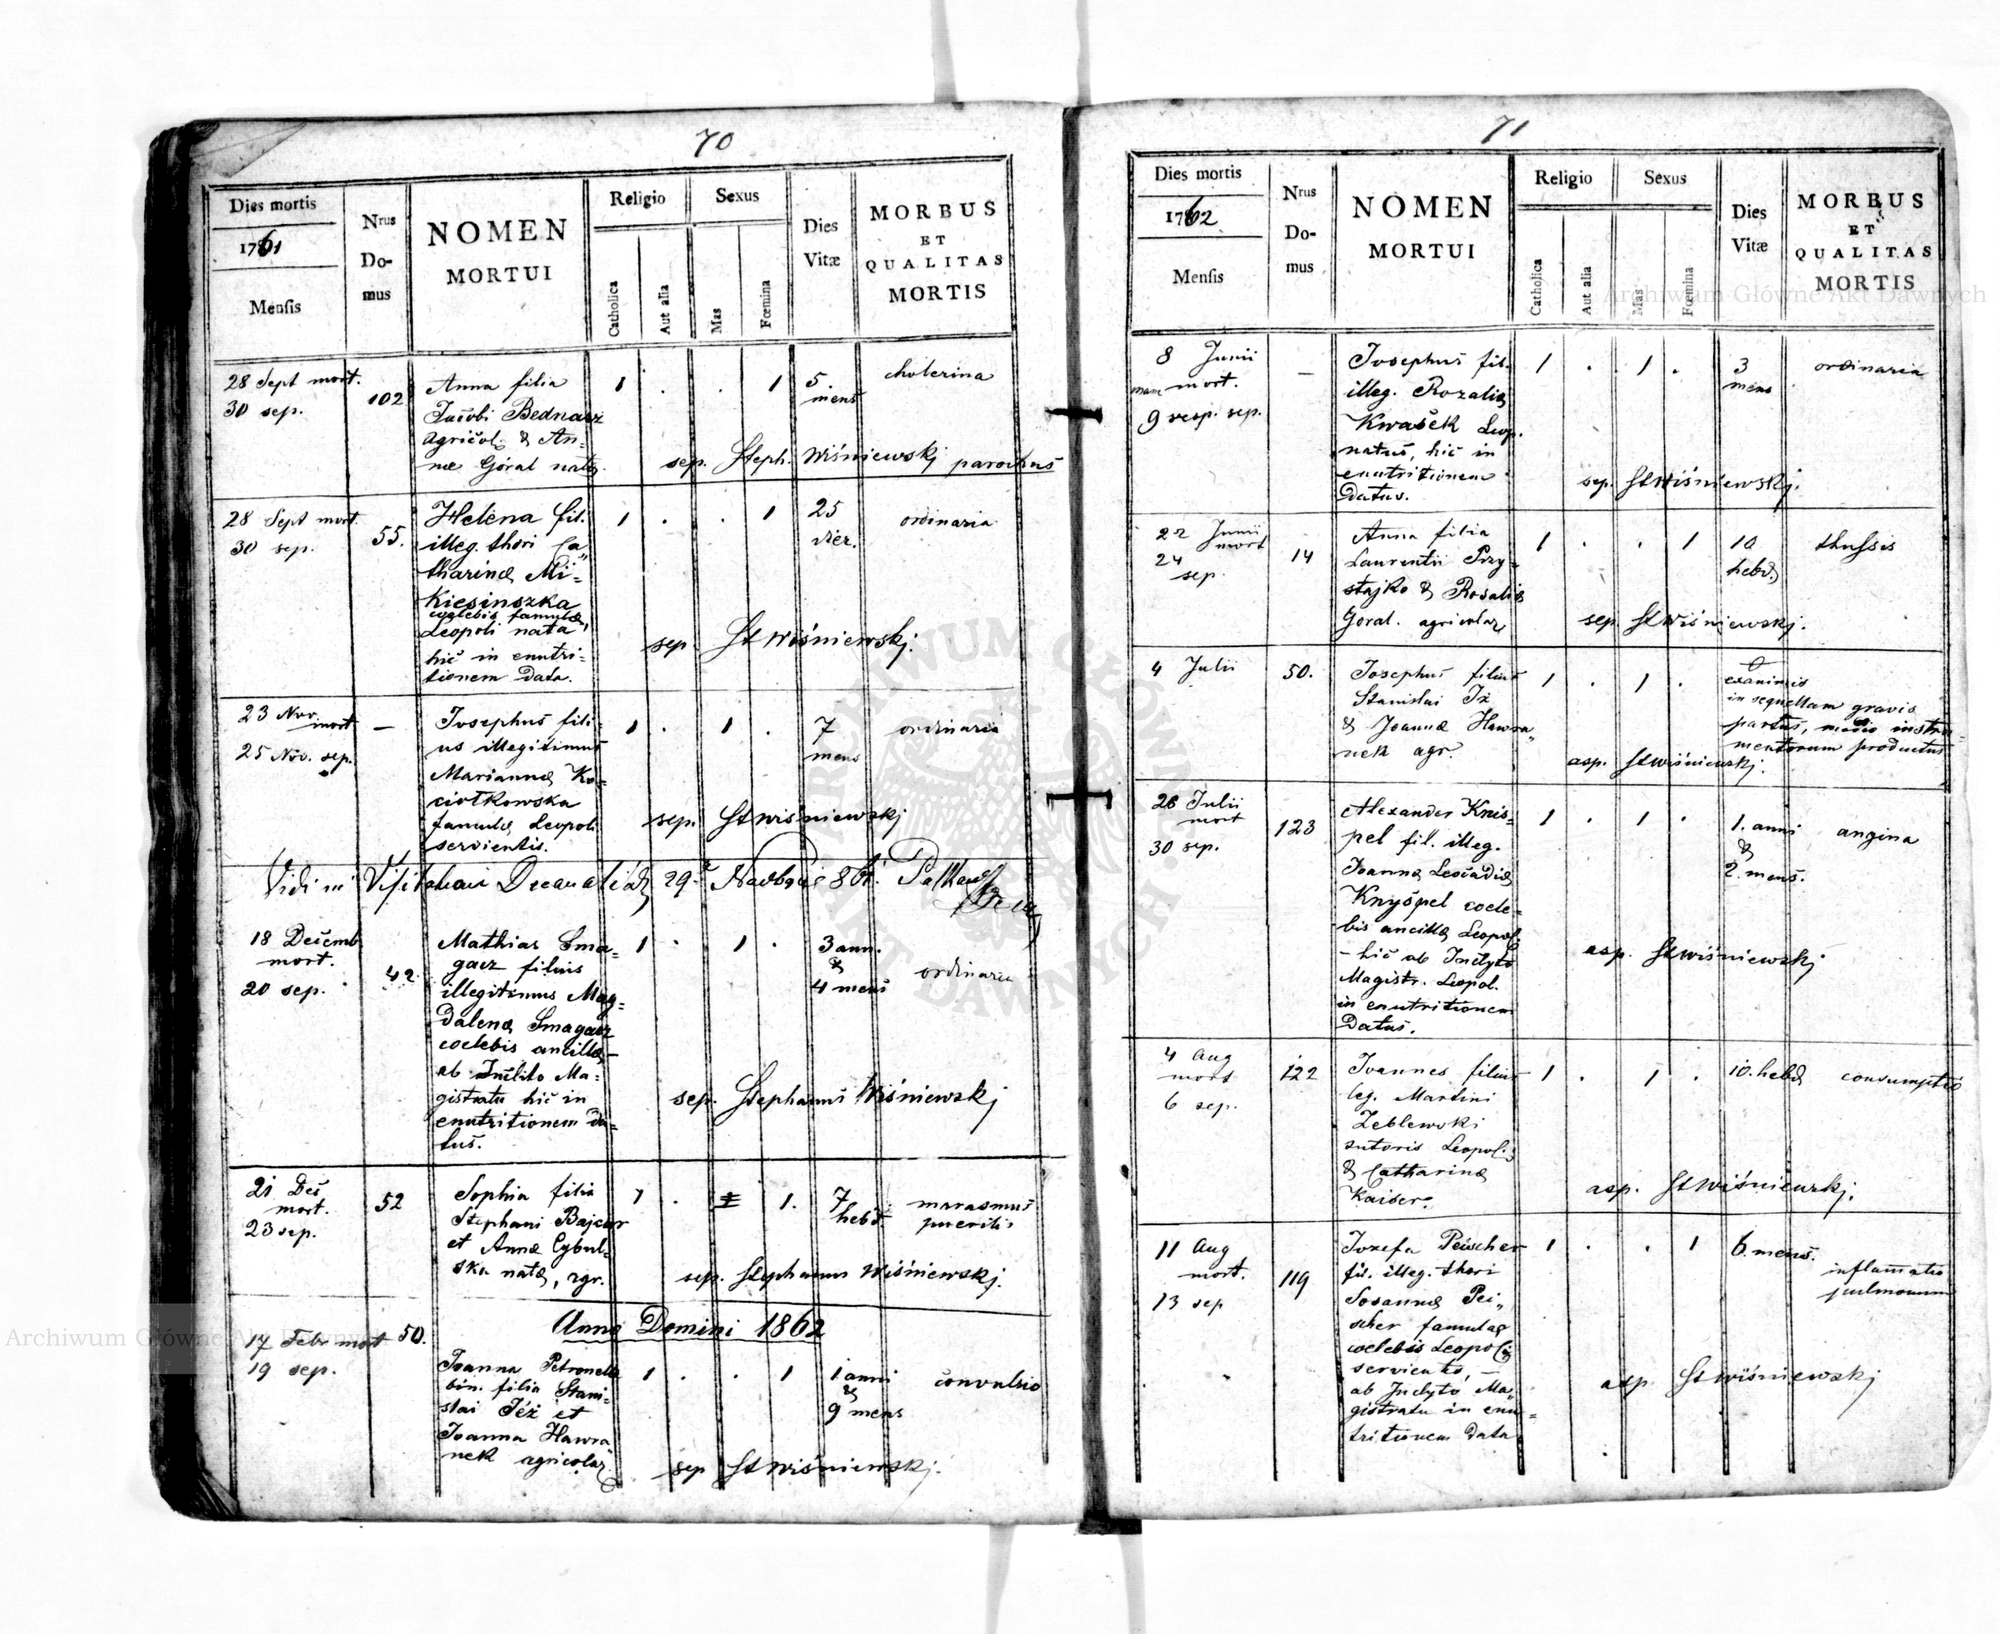 70
Dies mortis
1761
Mensis
Nrus
Do-
mus
NOMEN
MORTUI
Religio
Catholica
Aut alia
Sexus
Mas
Fœmina
Dies
Vitæ
MORBUS
ET
QUALITAS
MORTIS
28 Sept mort.
30 sep.
102
Anna filia
Jacobi Bednarz
agricol. & An-
næ Góral nata
1 . . 1
5.
mens
cholerina
sep. Steph. Wiśniewskj parochus
28 Sept mort.
30 sep.
55.
Helena fil.
illeg. thori Ca„
tharinæ Mi-
Kiesinszka
coelebis famulæ,
Leopoli nata
hic in enutri-
tionem data.
1 . . 1
25
dier.
ordinaria
sep. St Wiśniewskj.
23 Nov.
mort
25 Nov. sep.
—
Josephus fili-
us illegitimus
Mariannæ Ko-
ciotkowska
famulæ Leopoli
servientis.
1 . 1 .
7
mens
ordinaria
sep. St Wiśniewskj
Vidi in Visitatione Decanali 29
18 Decemb
mort.
20 sep.
42.
Mathias Sma-
garz filius
illegitimus Mag-
dalenæ Smagarz
coelebis ancillæ –
ab Inclito Ma-
gistratu hic in
enutritionem da-
tus.
1 . 1 .
3 ann.
&
4 mens
ordinaria
sep. Stephanus Wiśniewskj
21 Dec
mort.
23 sep.
52
Sophia filia
Stephani Bajcar
et Annæ Cybul-
ska natæ, agr.
1 . 1.
7
hebd.
marasmus
puerilis
sep. Stephanus Wiśniewskj.
Anno Domini 1862
17 Febr mort
19 sep.
50.
Joanna Petronella
bin. filia Stani-
slai Jéż et
Joanna Hawra
nek agricolar
1 . . 1
1 anni
&
9 mens
convulsio
sep St Wiśniewskj.
71
Dies mortis
1762
Mensis
Nrus
Do-
mus
NOMEN
MORTUI
Religio
Catholica
Aut alia
Sexus
Mas
Fœmina
Dies
Vitæ
MORBUS
ET
QUALITAS
MORTIS
8 Junii
mane mort.
9 vesp. sep.
—
Josephus fil.
illeg. Rozaliæ
Kwaśek Leop.
natus, hic in
enutritionem
datus.
1 . 1 .
3
mens
ordinaria
sep. St Wiśniewskj.
22 Junii
mort
24
sep.
14
Anna filia
Laurentii Przy-
stajko & Rosaliæ
Goral. agricolar
1 . . 1
10
hebd.
thussis
sep. St Wiśniewskj.
4 Julii
50.
Josephus filius
Stanislai Jż
& Joannæ Hawra„
nek agr.
1 . 1 .
exanimis
in sequellam gravis
partus, medio instru-
mentorum productus
asp. St Wiśniewskj.
26 Julii
mort
30 sep.
123
Alexander Knis-
pel fil. illeg.
Joannæ Leocadiæ
Knyśpel coele-
bis ancillæ Leopol.
– hic ab Inclyto
Magistr. Leopol.
in enutritionem
datus.
1 . 1 .
1. anni
&
2. mens.
angina
asp. St Wiśniewskj
4 Aug
mort
6 sep.
122
Joannes filius
leg. Martini
Zeblewski
sutoris Leopol.
& Catharinæ
Kaiser.
1 . 1 .
10. hebd
consumptio
asp. St Wiśniewskj.
11 Aug
mort.
13 sep
119
Jozefa Peischer
fil. illeg. thori
Susannæ Pei„
scher famulæ
coelebis Leopoli
servientis, –
ab Inclyto Ma„
gistratu in enu-
tritionem data
1 . . 1
6. mens.
inflamatio
pulmonum
asp St Wiśniewskj
Archiwum Główne Akt Dawnych
Archiwum Główne Akt Dawnych
ARCHIWUM GŁÓWNE AKT DAWNYCH